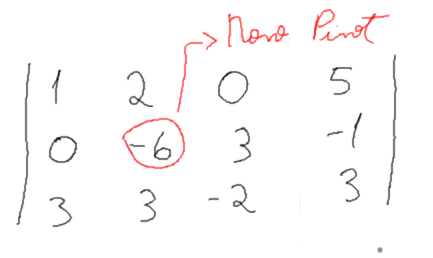 Novo Pivot
1 2 0 5
0 -6 3 -1
3 3 -2 3